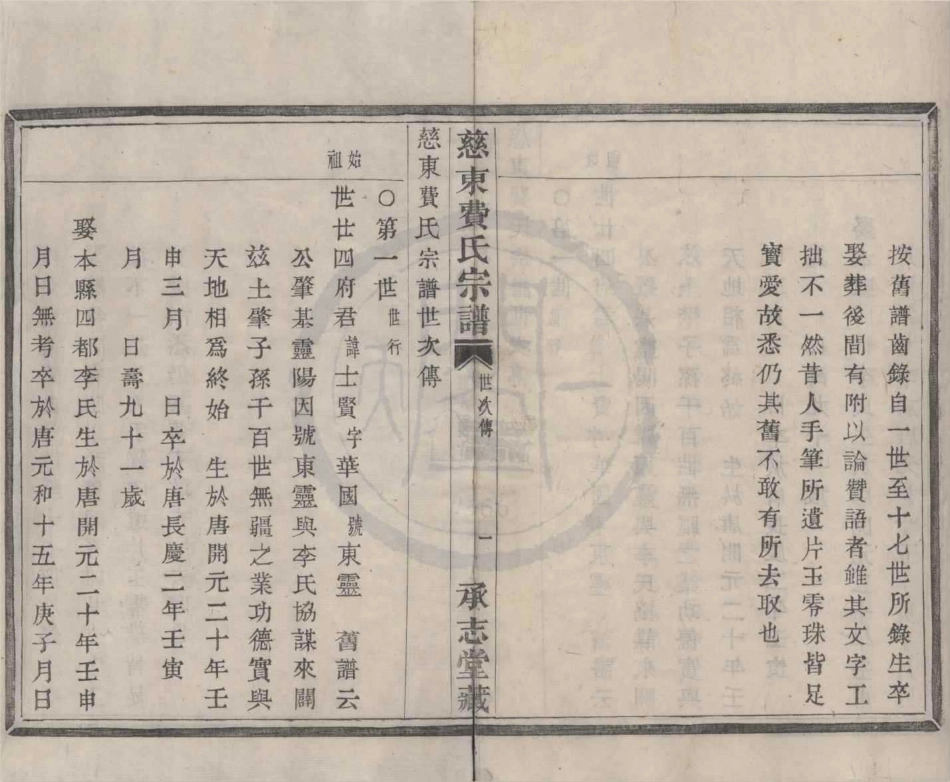 按舊譜齒錄自一世至十七世所錄生卒
娶葬後間有附以論贊語者雖其文字工
拙不一然昔人手筆所遺片玉零珠皆足
寶愛故悉仍其舊不敢有所去取也
慈東費氏宗譜 世次傳 一 承志堂藏
慈東費氏宗譜世次傳
○第一世 世行
始祖
世廿四府君諱士賢字華國號東靈 舊譜云
公肇基靈陽因號東靈與李氏協謀來闢
兹土肇子孫千百世無疆之業功德實與
天地相爲終始 生於唐開元二十年壬
申三月 日卒於唐長慶二年壬寅
月 日壽九十一歲
娶本縣四都李氏生於唐開元二十年壬申
月日無考卒於唐元和十五年庚子月日